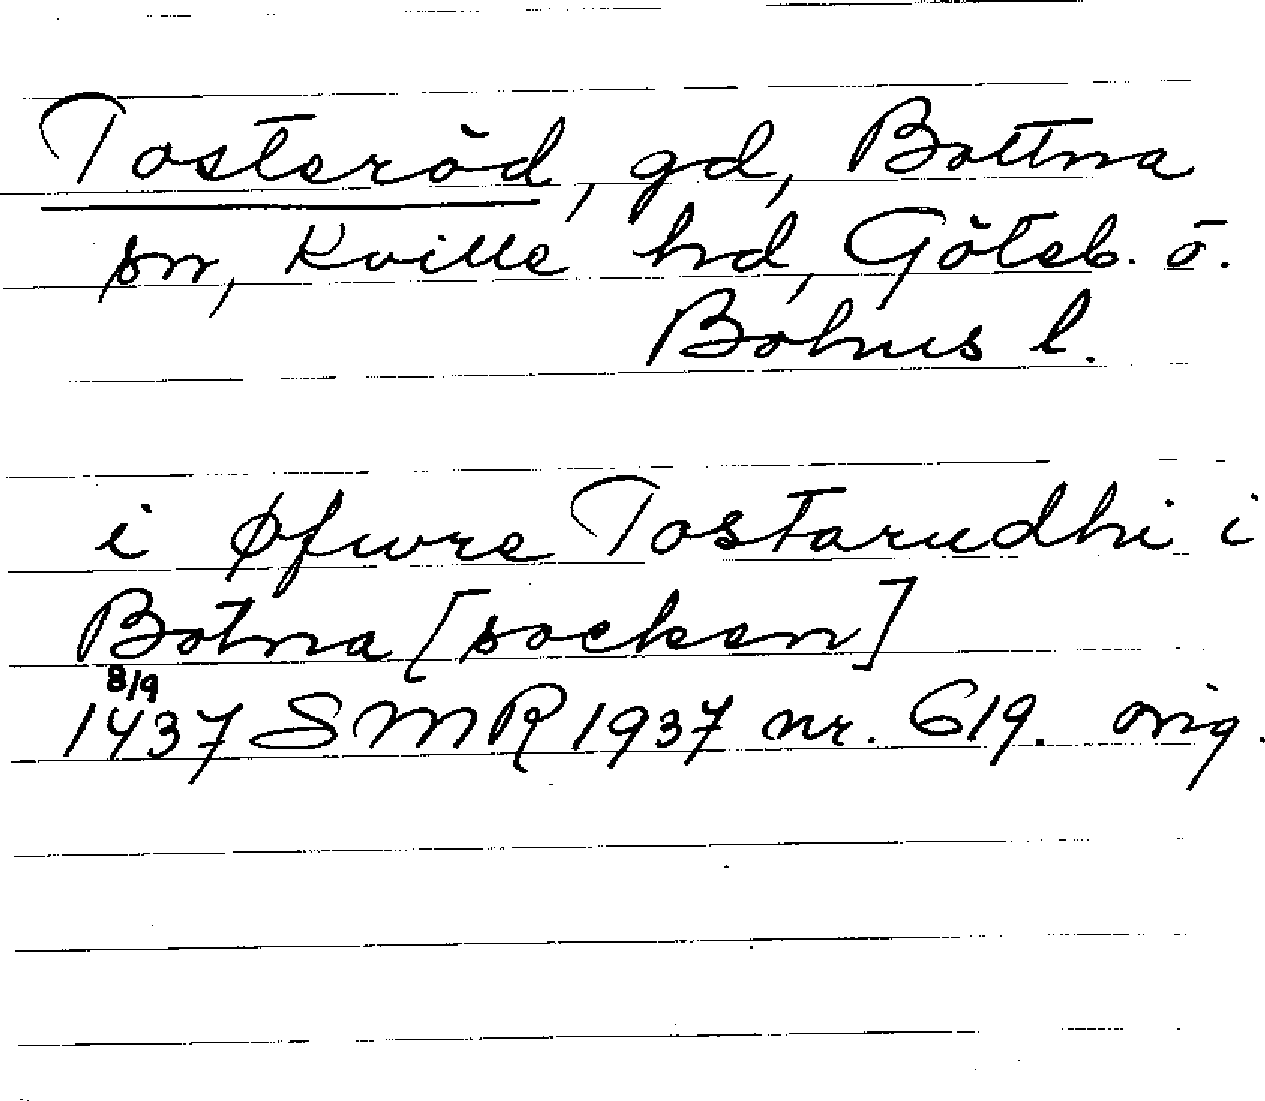 Tosteröd, gd, Bottna
sn, Kville hd, Göteb. o.
Bohus l.
i øfwre Tostarudhi i
Botna [socken]
8/9
1437 SMR 1937 nr. 619. orig.